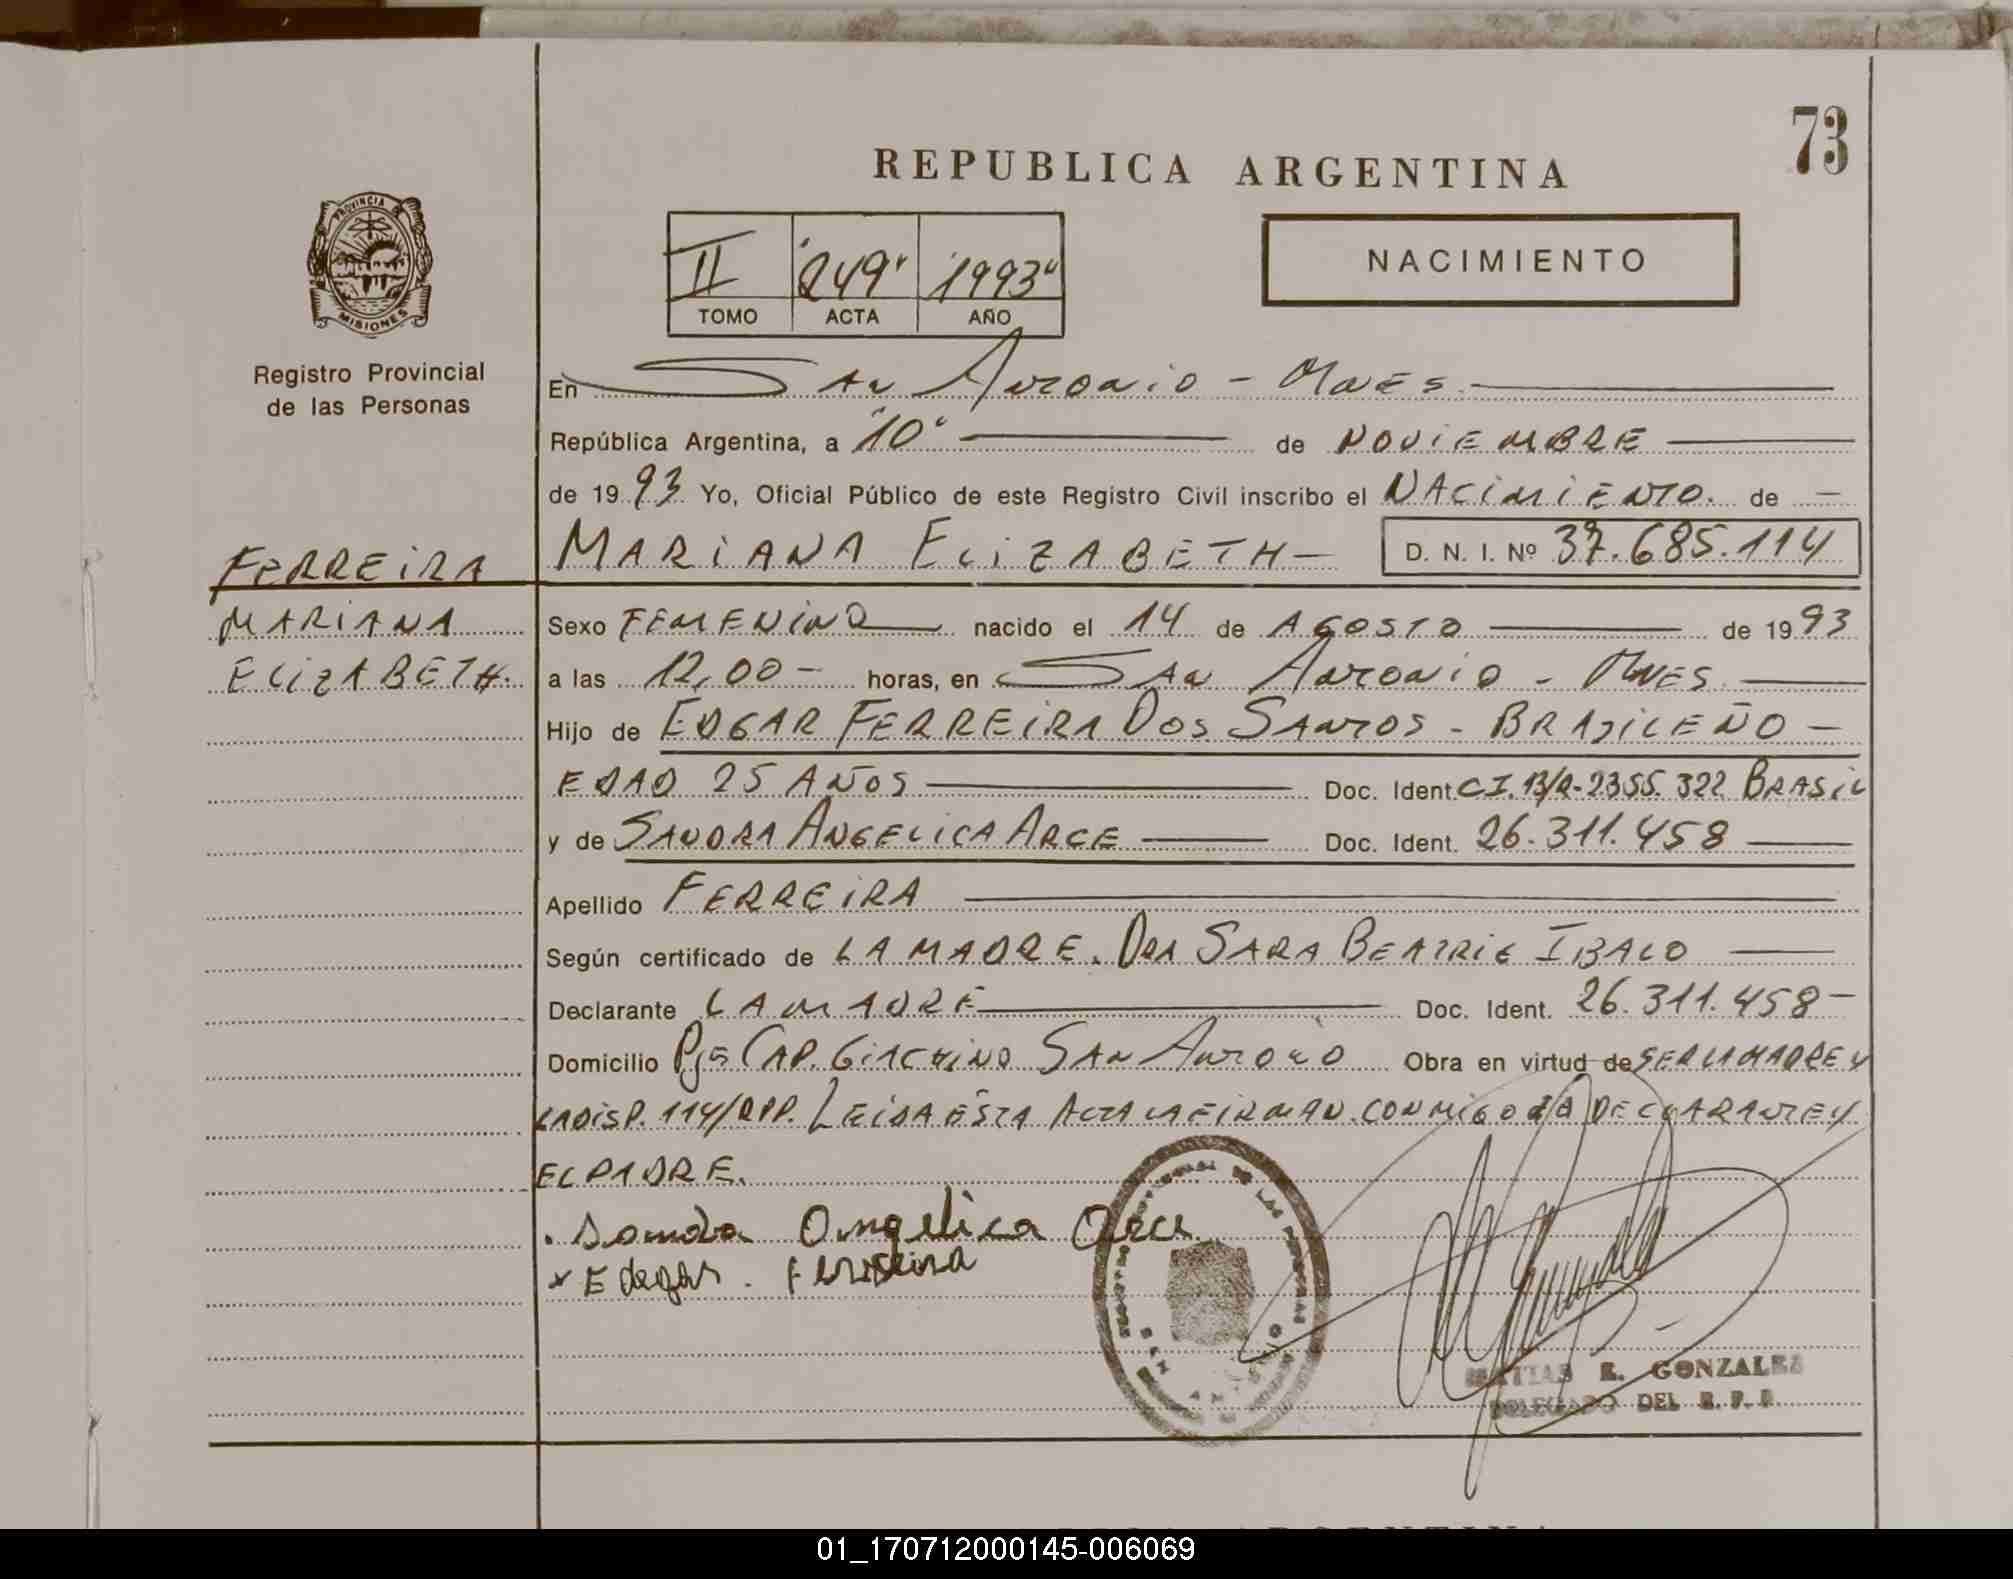 73
REPUBLICA ARGENTINA
PROVINCIA DE
MISIONES
Registro Provincial
de las Personas
II "249" "1993"
TOMO ACTA AÑO
NACIMIENTO
En San Antonio - Mnes
República Argentina, a "10" de NOVIEMBRE
de 1993 Yo, Oficial Público de este Registro Civil inscribo el NACIMIENTO. de -
FERREIRA
MARIANA
ELIZABETH.
MARIANA ELIZABETH- D. N. I. Nº 37.685.114
Sexo FEMENINO nacido el 14 de AGOSTO de 1993
a las 12,00- horas, en San Antonio - Mnes
Hijo de EDGAR FERREIRA DOS SANTOS - BRASILEÑO -
EDAD 25 AÑOS Doc. Ident. C.I. 13/R-2355.322 BRASIL
y de SANDRA ANGELICA ARCE Doc. Ident. 26.311.458
Apellido FERREIRA
Según certificado de LA MADRE. DRA SARA BEATRIZ IBALO
Declarante LA MADRE Doc. Ident. 26.311.458-
Domicilio Pje CAP. GIACHINO SAN ANTONIO Obra en virtud de SER LA MADRE Y
LA DISP. 114/RPP. LEIDA ESTA ACTA LA FIRMAN CONMIGO LA DECLARANTE Y
EL PADRE.
Sandra Angelica Arce
x Edegar. Ferreira
MATIAS E. GONZALEZ
DELEGADO DEL R. P. P.
01_170712000145-006069